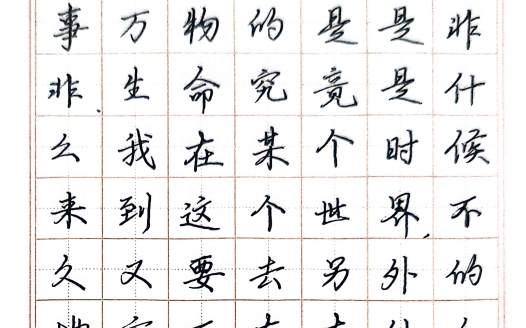 事万物的是是非
非.生命究竟是什
么我在某个时候
来到这个世界,不
久又要去另外的